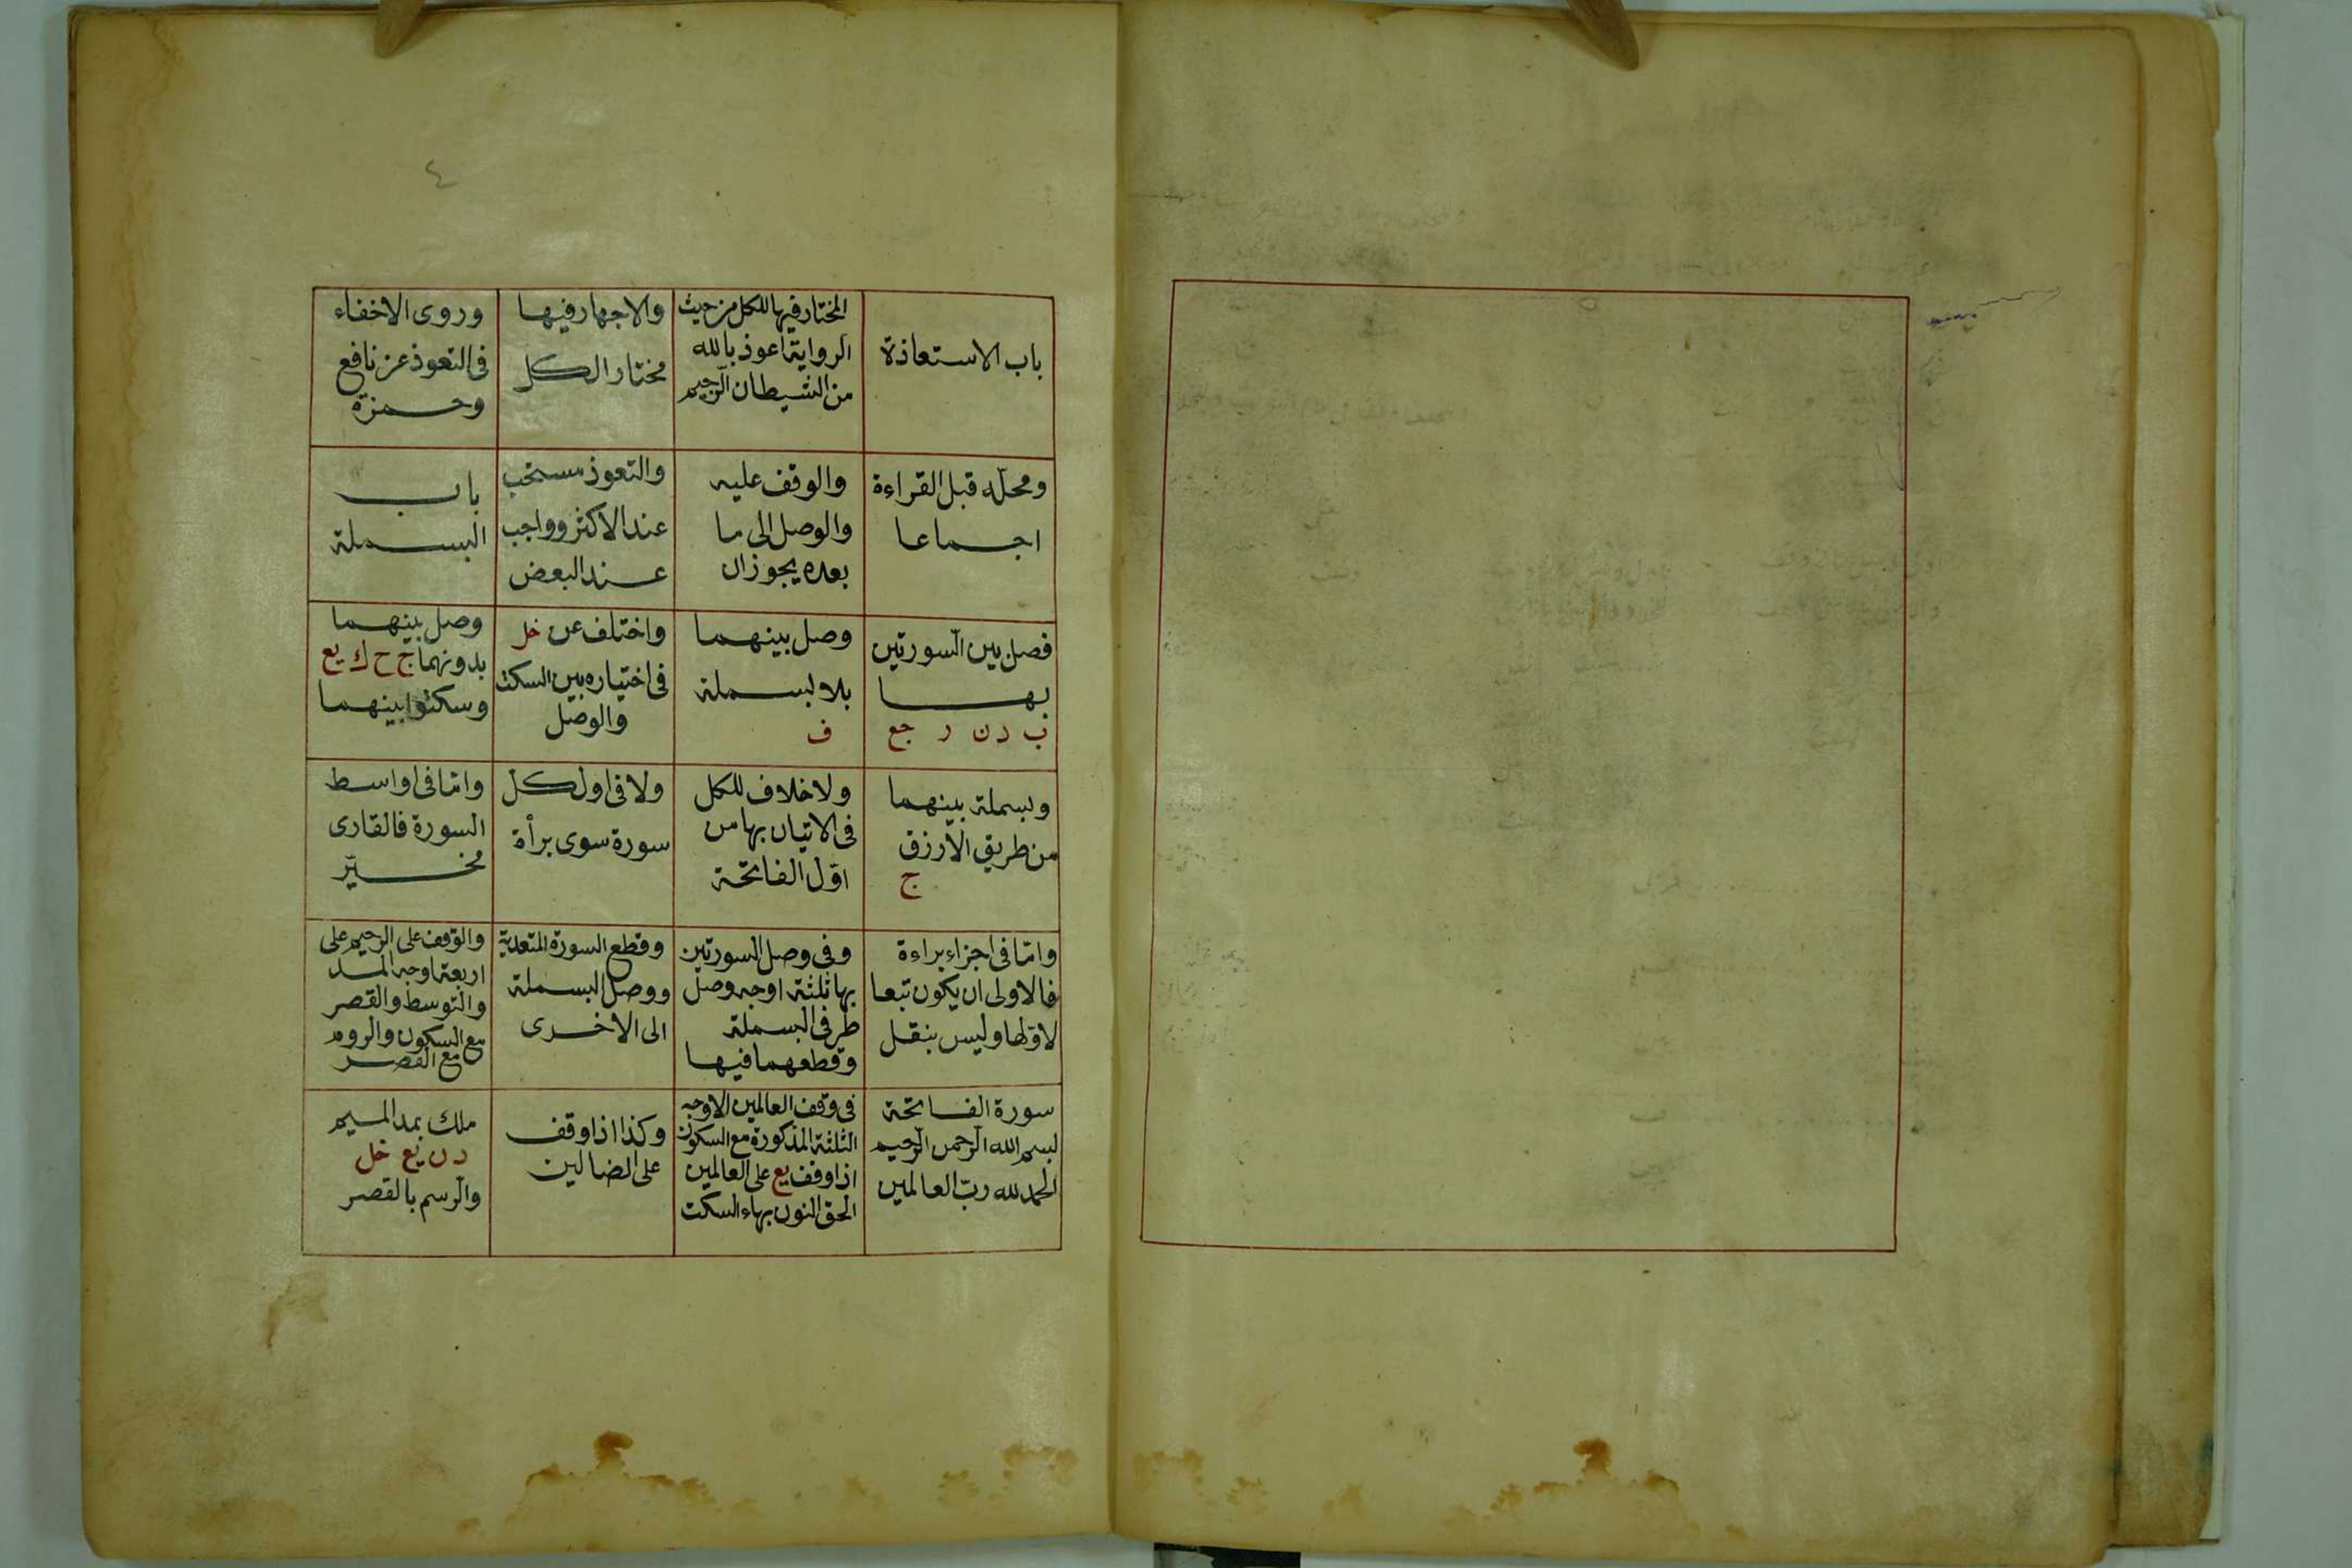 ٤
باب الاستعاذة
المختار فيها للكل من حيث
الرواية اعوذ بالله
من الشيطان الرّجيم
والاجهار فيها
مختار الكل
وروى الاخفاء
فى التعوذ عن نافع
وحمزة
ومحلّه قبل القراءة
اجماعا
والوقف عليه
والوصل الى ما
بعده يجوزان
والتعوذ مستحب
عند الاكثر وواجب
عند البعض
باب
البسملة
فصل بين السّورتين
بها
ب د ن ر جع
وصل بينهما
بلا بسملة
ف
واختلف عن خل
فى اختياره بين السكت
والوصل
وصل بينهما
بدونهما ج ح ك يع
وسكتوا بينهما
وبسملة بينهما
من طريق الازرق
ج
ولا خلاف للكل
فى الاتيان بها من
اوّل الفاتحة
ولا فى اول كل
سورة سوى برأة
وامّا فى اواسط
السورة فالقارى
مخيّر
وامّا فى اجزاء براءة
فالاولى ان يكون تبعا
لاوّلها وليس بنقل
وفى وصل السورتين
بها ثلثة اوجه وصل
طرفى البسملة
وقطعهما فيها
وقطع السورة المتعدية
ووصل البسملة
الى الاخرى
والوقف على الرحيم على
اربعة اوجه المد
والتوسط والقصر
مع السكون والروم
مع القصر
سورة الفاتحة
بسم الله الرّحمن الرّحيم
الحمد لله ربّ العالمين
فى وقف العالمين الاوجه
الثلثة المذكورة مع السكون
اذا وقف يع على العالمين
الحق النون بهاء السكت
وكذا اذا وقف
على الضالين
ملك بمد الميم
ر ن يع خل
والرّسم بالقصر